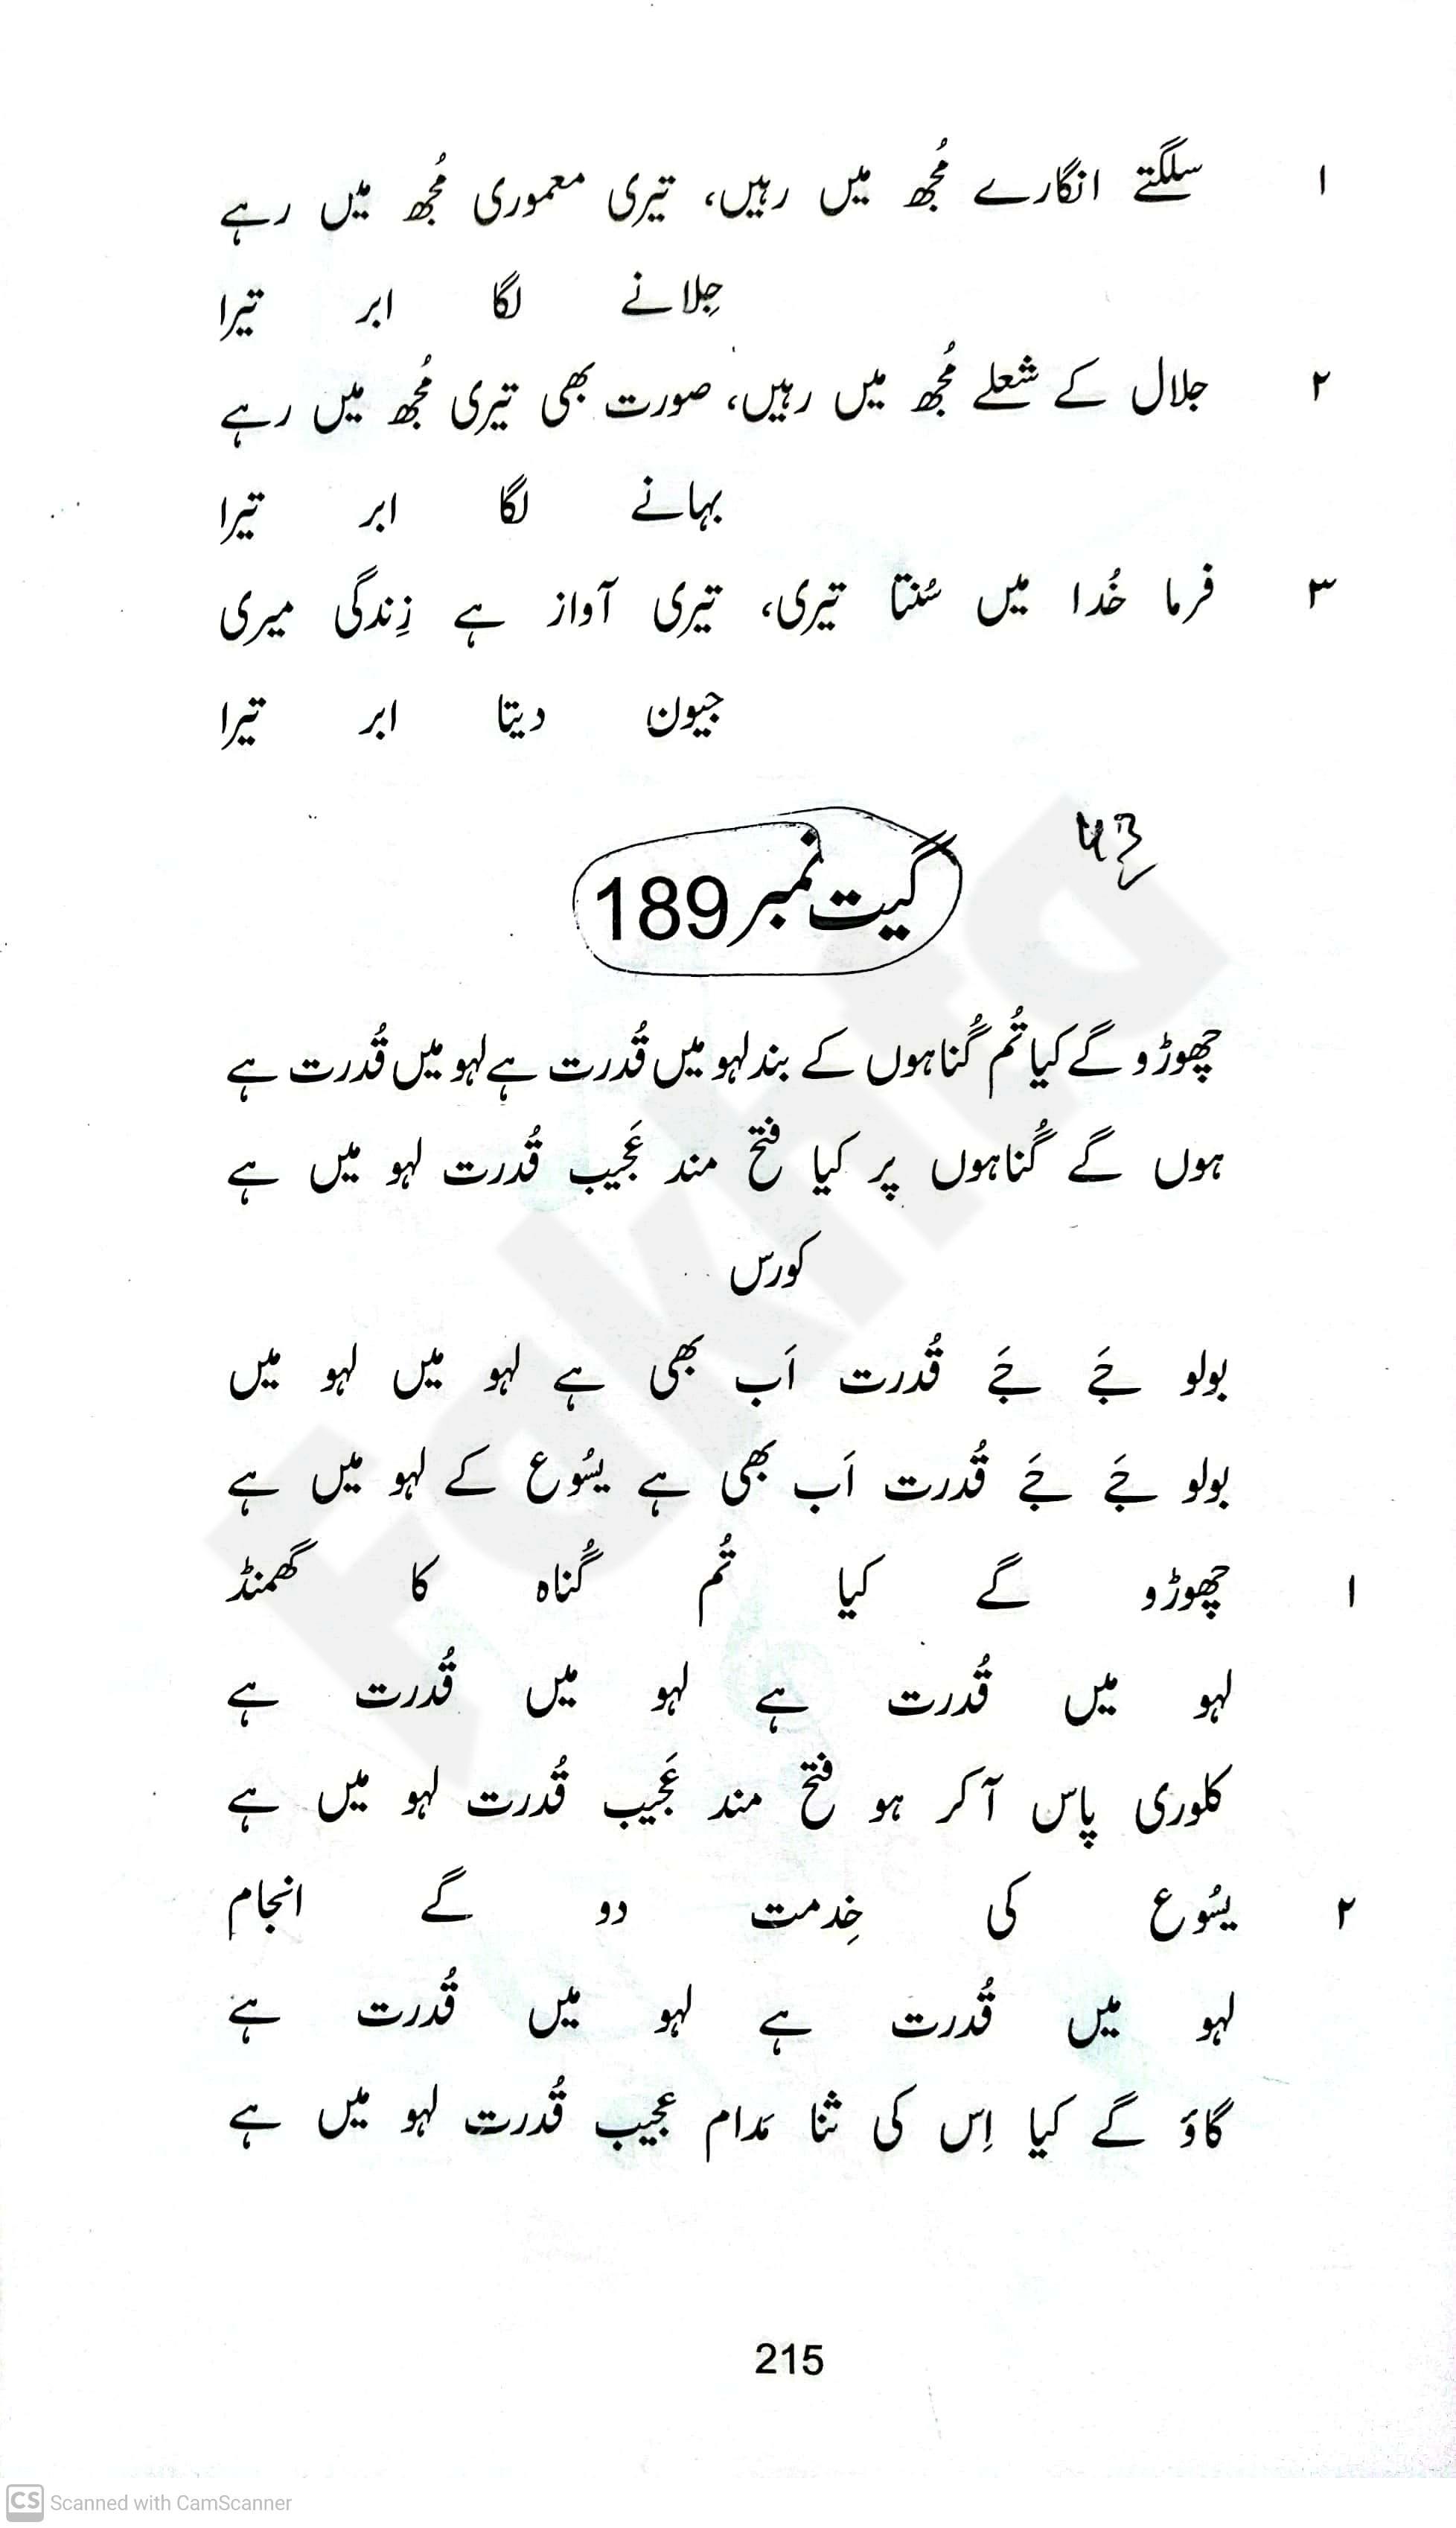 ۱ سلگتے انگارے مُجھ میں رہیں، تیری معموری مُجھ میں رہے
جِلانے لگا ابر تیرا
۲ جلال کے شعلے مُجھ میں رہیں، صورت بھی تیری مُجھ میں رہے
بہانے لگا ابر تیرا
۳ فرما خُدا میں سُنتا تیری، تیری آواز ہے زِندگی میری
جیون دیتا ابر تیرا
گیت نمبر 189
چھوڑو گے کیا تُم گُناہوں کے بند لہو میں قُدرت ہے لہو میں قُدرت ہے
ہوں گے گُناہوں پر کیا فتح مند عَجیب قُدرت لہو میں ہے
کورس
بولو جَے جَے قُدرت اَب بھی ہے لہو میں لہو میں
بولو جَے جَے قُدرت اَب بھی ہے یسُوع کے لہو میں ہے
۱ چھوڑو گے کیا تُم گُناہ کا گھمنڈ
لہو میں قُدرت ہے لہو میں قُدرت ہے
کلوری پاس آ کر ہو فتح مند عَجیب قُدرت لہو میں ہے
۲ یسُوع کی خِدمت دو گے انجام
لہو میں قُدرت ہے لہو میں قُدرت ہے
گاؤ گے کیا اِس کی ثنا مَدام عجیب قُدرت لہو میں ہے
215
Fakhta
CS Scanned with CamScanner